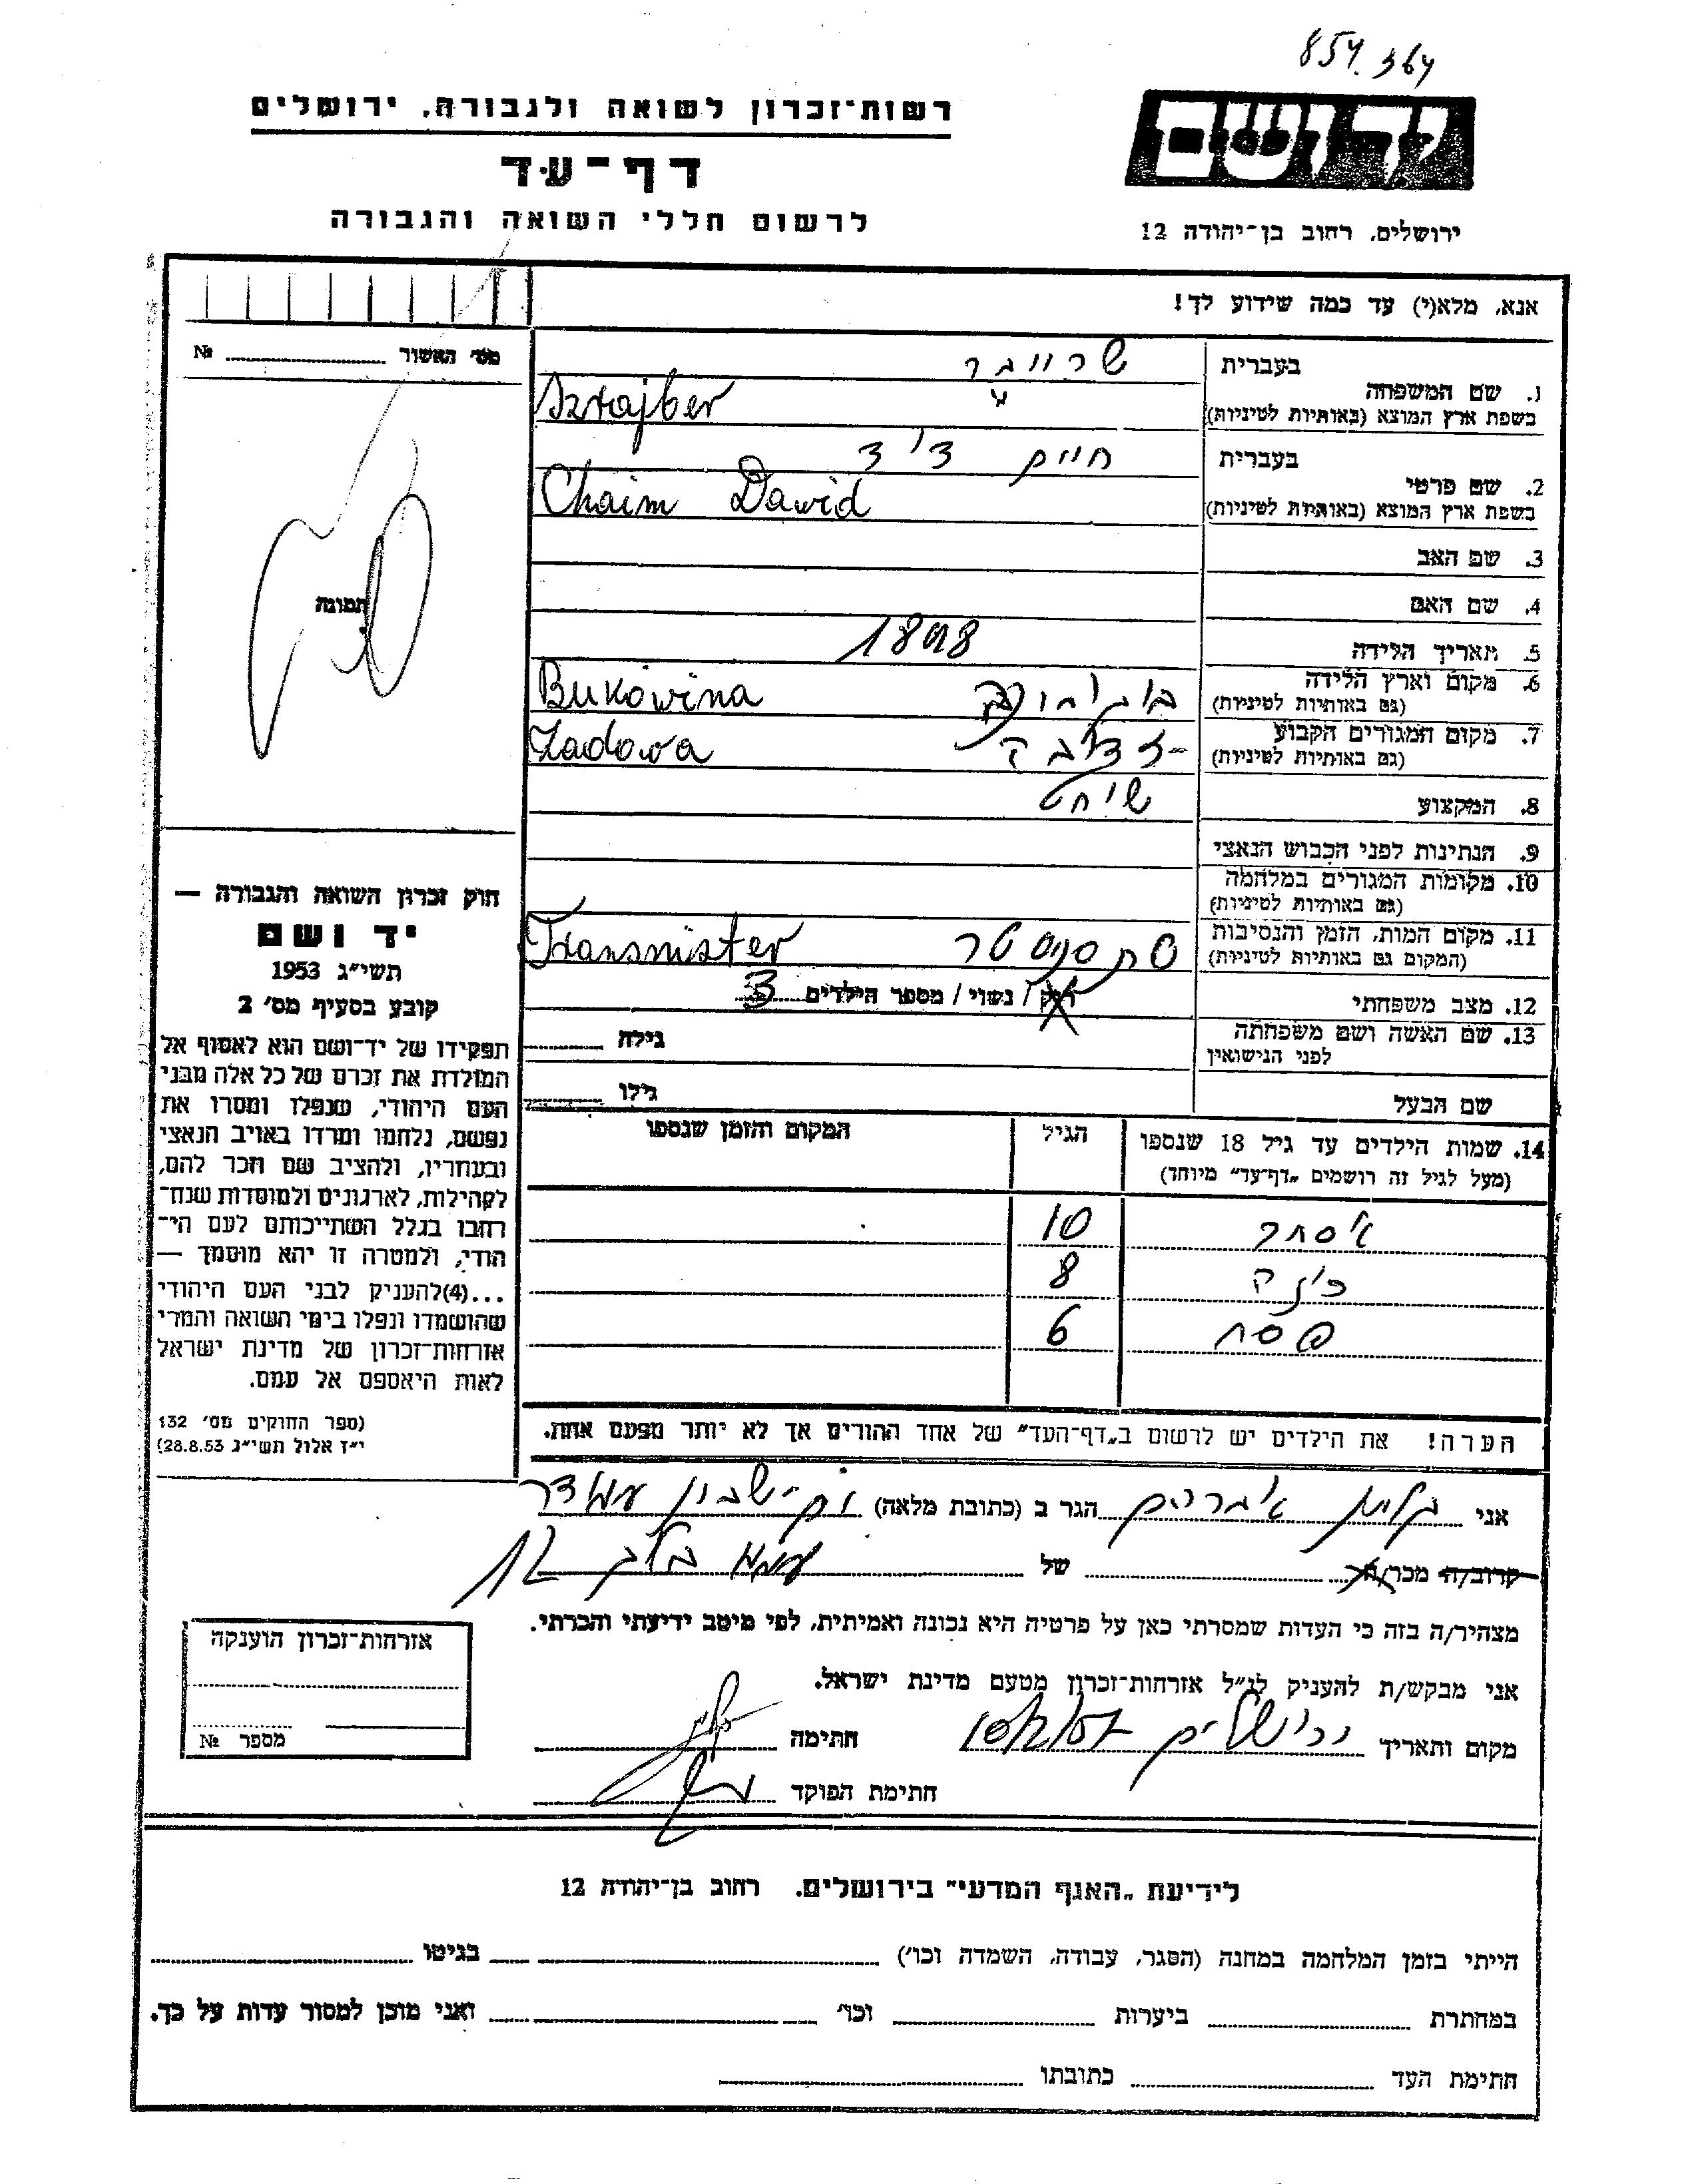 854.364
ידושם
רשות־זכרון לשואה ולגבורה, ירושלים
דף־עד
לרשום חללי השואה והגבורה
ירושלים, רחוב בן־יהודה 12
אנא, מלא(י) עד כמה שידוע לך!
מס׳ האשור № 
1. שם המשפחה
בעברית
בשפת ארץ המוצא (באותיות לטיניות)
Sztajber
2. שם פרטי
בעברית חיים דוד
בשפת ארץ המוצא (באותיות לטיניות) Chaim Dawid
3. שם האב
4. שם האם
תמונה
5. תאריך הלידה 1898
6. מקום וארץ הלידה
(גם באותיות לטיניות) בוקובינה Bukowina
7. מקום המגורים הקבוע
(גם באותיות לטיניות) זדובה Zadowa
8. המקצוע שוחט
9. הנתינות לפני הכבוש הנאצי
10. מקומות המגורים במלחמה
(גם באותיות לטיניות)
11. מקום המות, הזמן והנסיבות
(המקום גם באותיות לטיניות) Transnister
12. מצב משפחתי רוק / נשוי / מספר הילדים 3
13. שם האשה ושם משפחתה
לפני הנישואין גילה
שם הבעל גילו
14. שמות הילדים עד גיל 18 שנספו
(מעל לגיל זה רושמים „דף־עד" מיוחד)
הגיל
המקום והזמן שנספו
אסתר 10
8
פסח 6
הערה! את הילדים יש לרשום ב„דף־העד" של אחד ההורים אך לא יותר מפעם אחת.
חוק זכרון השואה והגבורה —
יד ושם
תשי״ג 1953
קובע בסעיף מס׳ 2
תפקידו של יד־ושם הוא לאסוף אל
המולדת את זכרם של כל אלה מבני
העם היהודי, שנפלו ומסרו את
נפשם, נלחמו ומרדו באויב הנאצי
ובעוזריו, ולהציב שם וזכר להם,
לקהילות, לארגונים ולמוסדות שנח־
רבו בגלל השתייכותם לעם הי־
הודי, ולמטרה זו יהא מוסמך —
...(4)להעניק לבני העם היהודי
שהושמדו ונפלו בימי השואה והמרי
אזרחות־זכרון של מדינת ישראל
לאות היאספם אל עמם.
(ספר החוקים מס׳ 132
י״ז אלול תשי״ג 28.8.53)
אני אברהם הגר ב (כתובת מלאה)
קרוב/ה מכר/ה של
מצהיר/ה בזה כי העדות שמסרתי כאן על פרטיה היא נכונה ואמיתית, לפי מיטב ידיעתי והכרתי.
אני מבקש/ת להעניק לנ״ל אזרחות־זכרון מטעם מדינת ישראל.
מקום ותאריך ירושלים חתימה
חתימת הפוקד
אזרחות־זכרון הוענקה
מספר №
לידיעת „האגף המדעי" בירושלים, רחוב בן־יהודה 12
הייתי בזמן המלחמה במחנה (הסגר, עבודה, השמדה וכו׳) בגיטו
במחתרת ביערות וכו׳ ואני מוכן למסור עדות על כך.
חתימת העד כתובתו